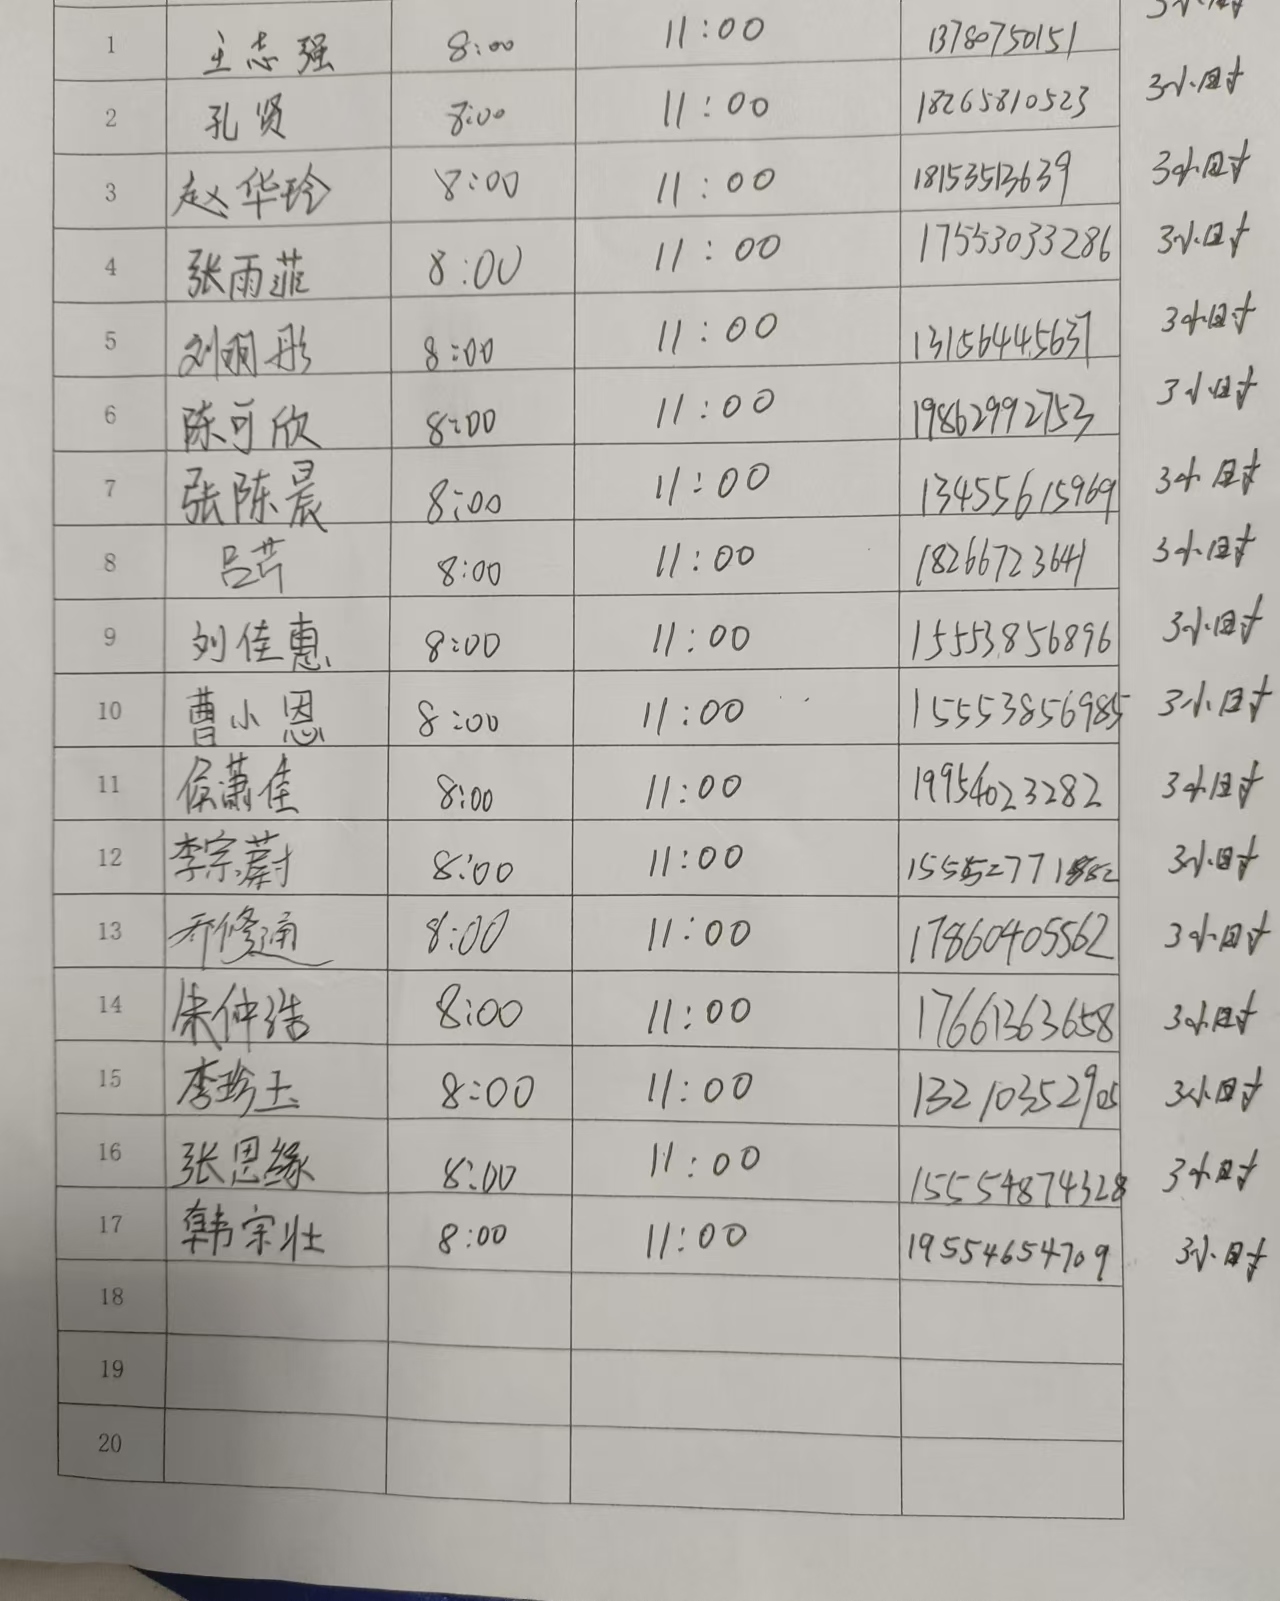 3小时
1 王志强 8:00 11:00 13780750151
2 孔贤 8:00 11:00 18265810523 3小时
3 赵华玲 8:00 11:00 18153513639 3小时
4 张雨菲 8:00 11:00 17553033286 3小时
5 刘丽彤 8:00 11:00 13156445637 3小时
6 陈可欣 8:00 11:00 19862992753 3小时
7 张陈晨 8:00 11:00 13455615969 3小时
8 吕芹 8:00 11:00 18266723641 3小时
9 刘佳惠 8:00 11:00 15553856896 3小时
10 曹小恩 8:00 11:00 15553856985 3小时
11 侯潇佳 8:00 11:00 19954023282 3小时
12 李宗蔚 8:00 11:00 3小时
13 乔修通 8:00 11:00 17860405562 3小时
14 朱仲浩 8:00 11:00 17661363658 3小时
15 李珍玉 8:00 11:00 13210352905 3小时
16 张思缘 8:00 11:00 15554874328 3小时
17 韩宗壮 8:00 11:00 19554654709 3小时
18
19
20